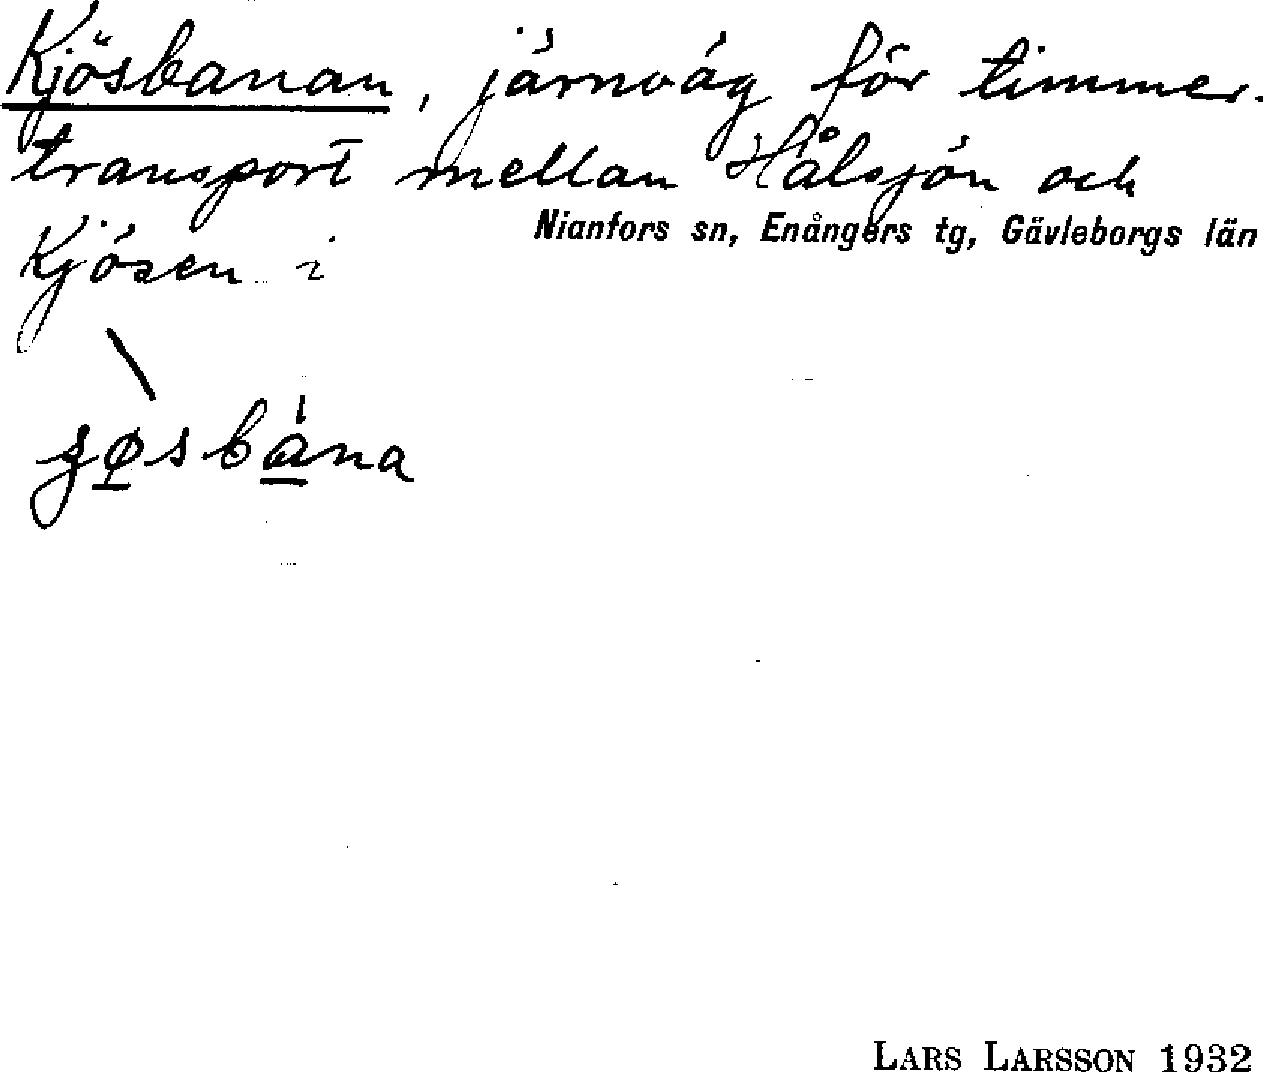 Kjösbanan, järnväg för timmer-
transport mellan Hålsjön och
Kjösen i
Nianfors sn, Enångers tg, Gävleborgs län
LARS LARSSON 1932